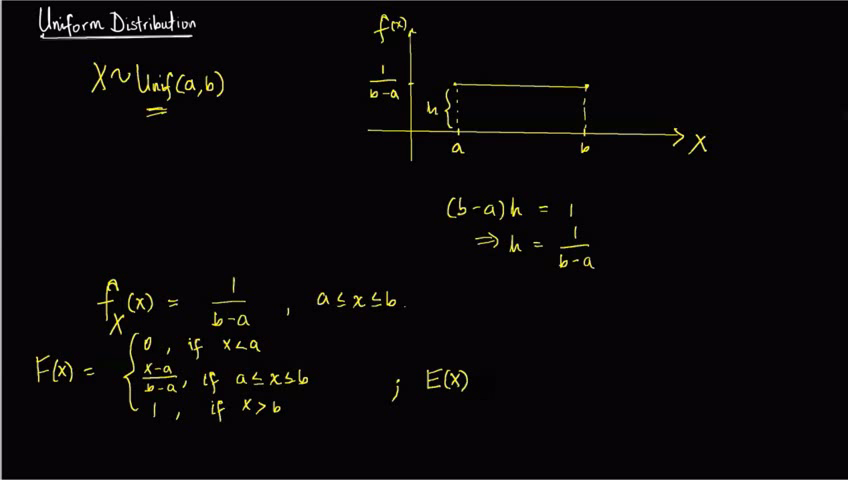 Uniform Distribution
X ~ Unif(a,b)
f(x)
1/(b-a)
h
a
b
X
(b-a)h = 1
⇒ h = 1/(b-a)
f_X(x) = 1/(b-a) , a ≤ x ≤ b.
F(x) = { 0 , if x < a
(x-a)/(b-a) , if a ≤ x ≤ b ; E(X)
1 , if x > b